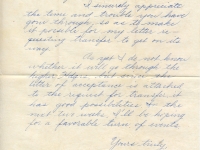 I sincerely appreciate
the time and trouble you have
gone through, so as to make
it possible for my letter re-
questing transfer to get on its
way.
As yet I do not know
whether it will go through the
higher Hdqrs. but since the
letter of acceptance is attached
to the request for transfer it
has good possibilities. In the
next two weeks I'll be hoping
for a favorable turn of events.
Yours truly,